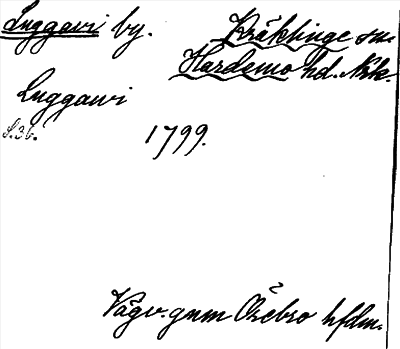 Luggavi by. Kräklinge sn.
Hardemo hd. Nrk.
Luggawi
S. 36. 1799.
Vägv. gnm Örebro hfdm.